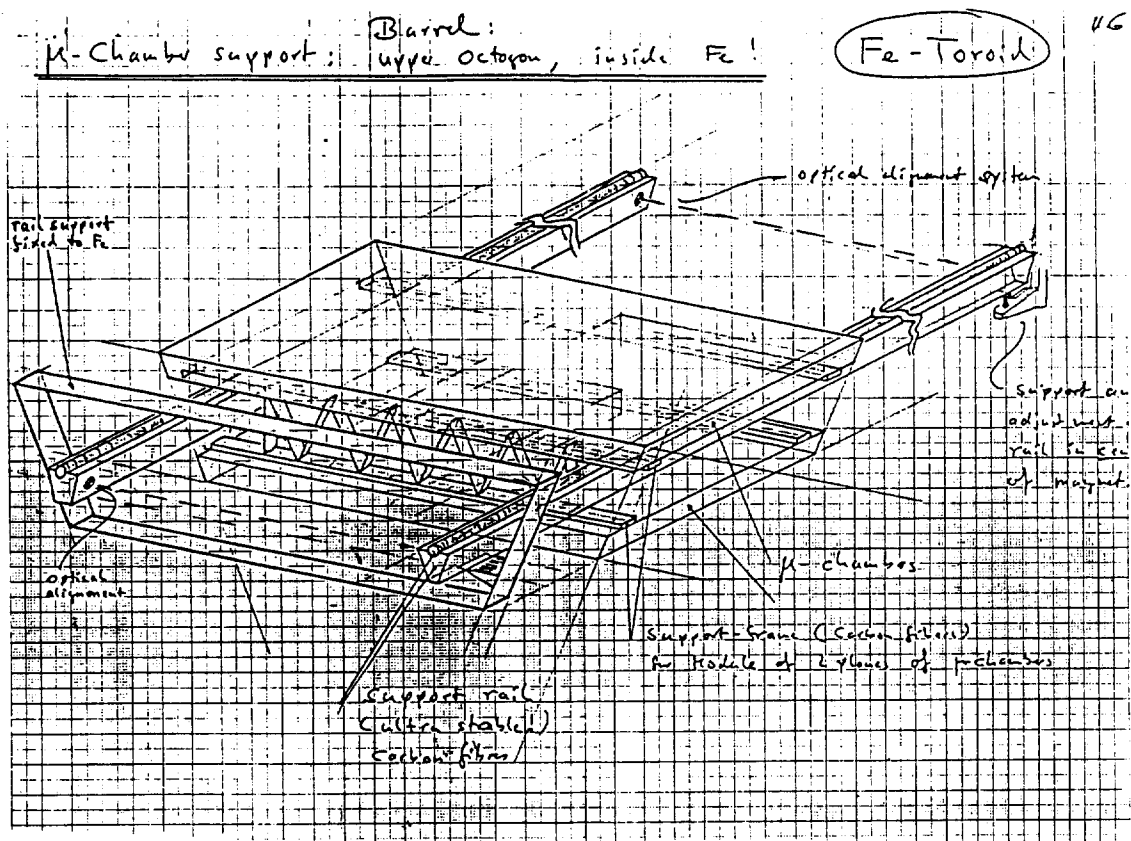 Barrel:
μ-Chamber support: upper Octogon, inside Fe!
Fe-Toroid
optical alignment system
rail support
fixed to Fe
support an
adjustment
rail in cen
of magnet.
optical
alignment
μ-chambers
Support-frame (Carbon fibers)
for Module of 2 planes of μ-chambers
Support rail
(ultra stable!)
Carbon fibres